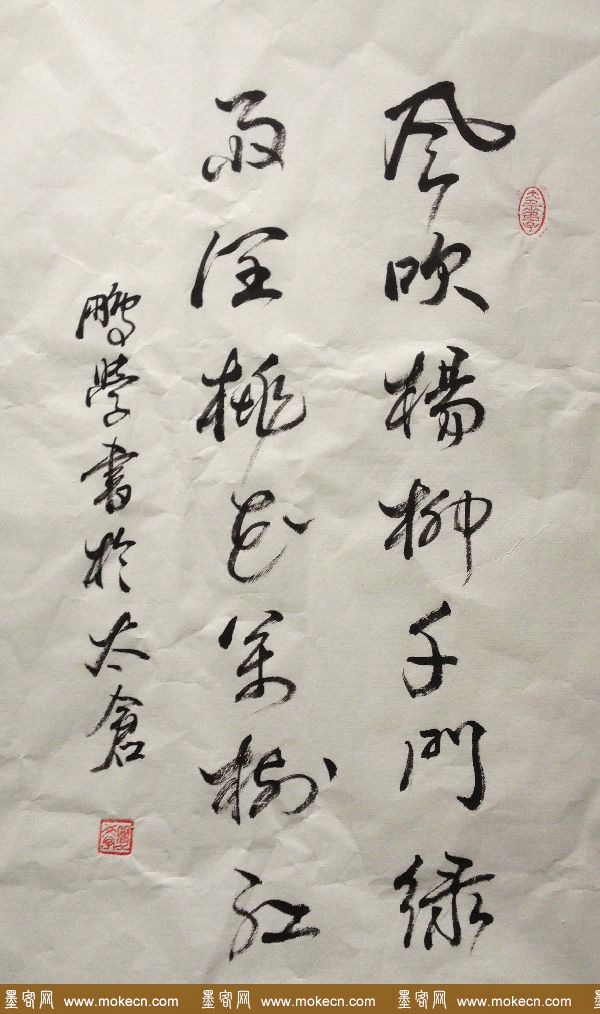 風吹楊柳千門綠
雨润桃花萬樹紅
鵬學書於太倉
墨客网 www.mokecn.com 墨客网 www.mokecn.com 墨客网 www.mokecn.com